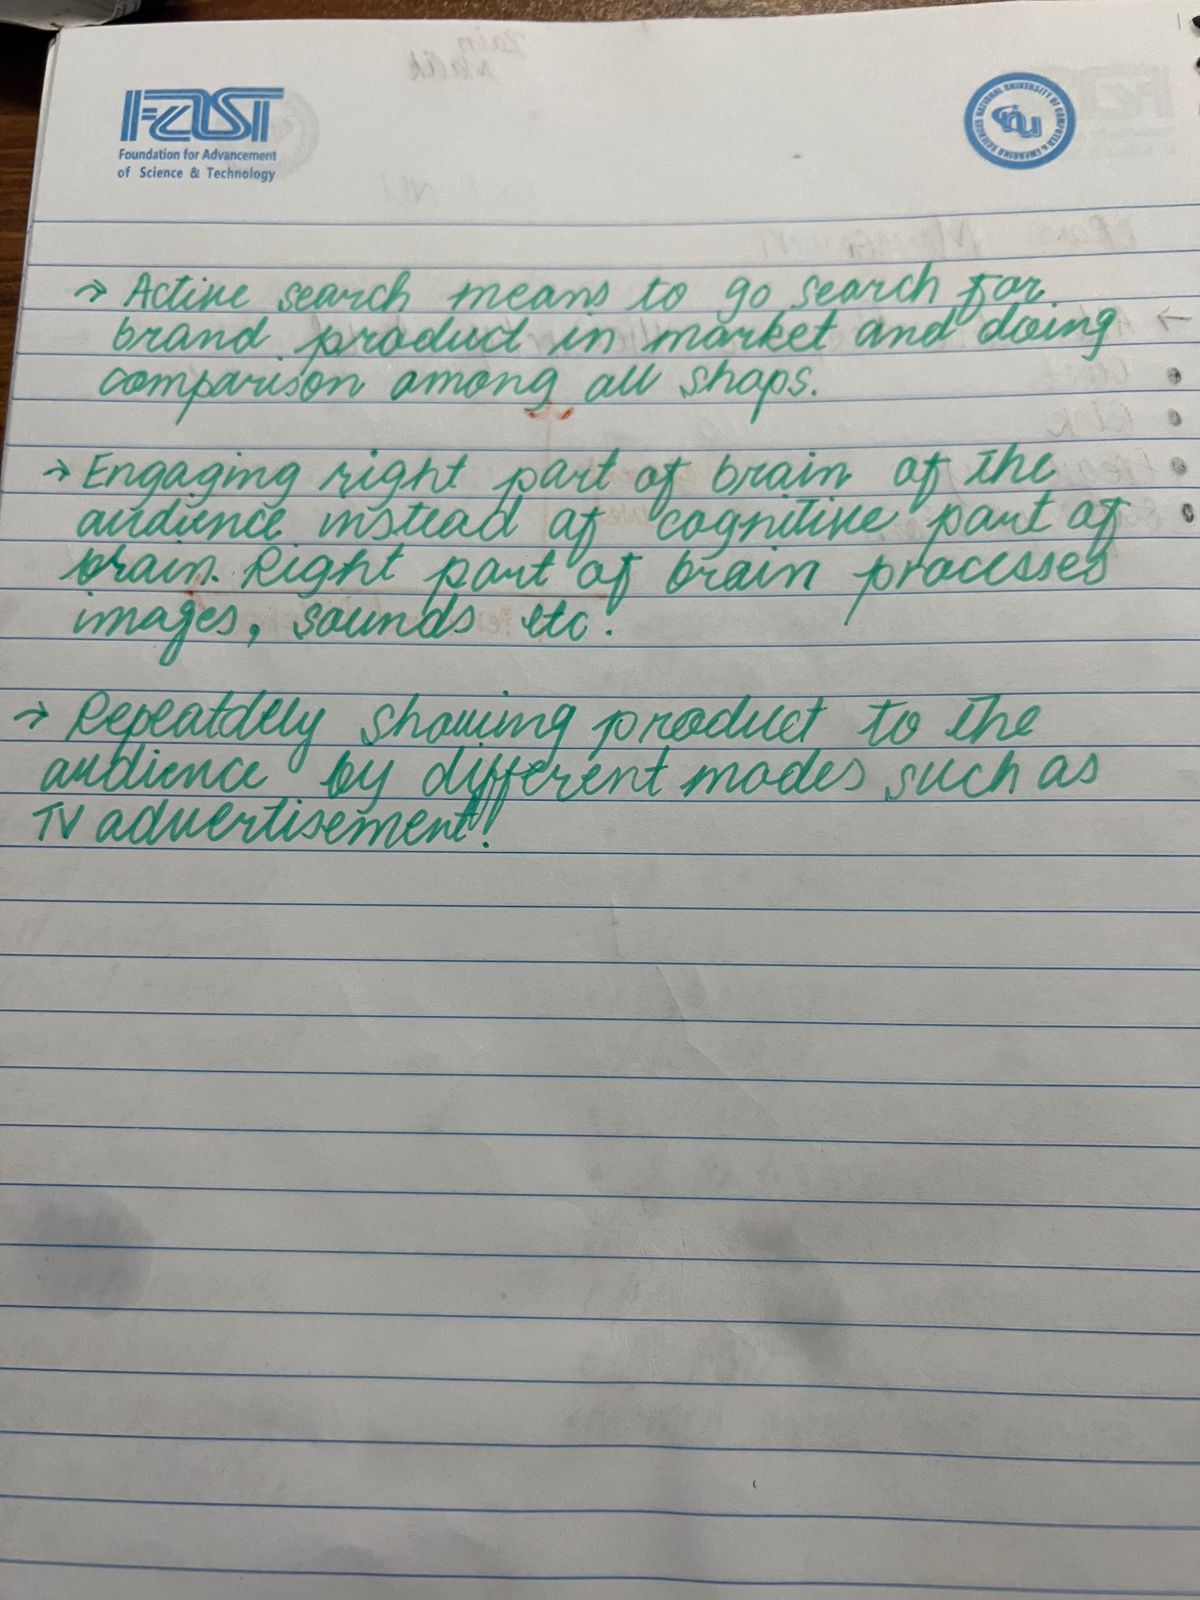 FAST
Foundation for Advancement
of Science & Technology
NATIONAL UNIVERSITY OF COMPUTER & EMERGING SCIENCES
nu
→ Active search means to go search for
brand product in market and doing
comparison among all shops.
→ Engaging right part of brain of the
audience instead of cognitive part of
brain. Right part of brain processes
images, sounds etc.
→ Repeatdely showing product to the
audience by different modes such as
TV advertisement!